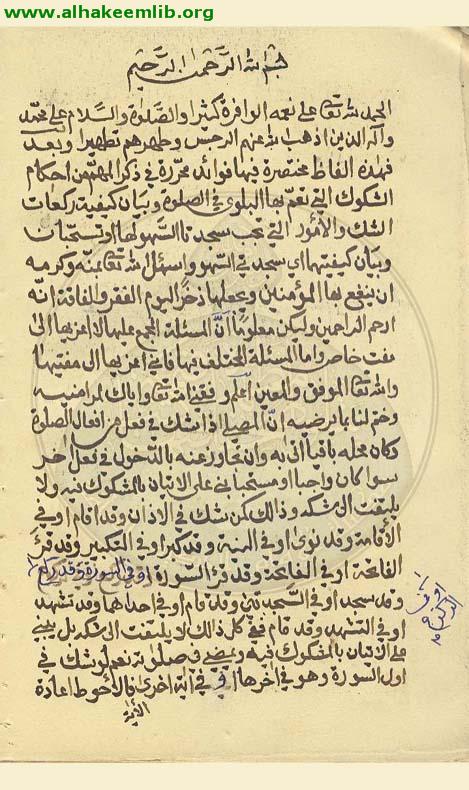 www.alhakeemlib.org
بسم الله الرحمن الرحيم
الحمد لله تعالى على نعمه الوافرة كثيرا والصلوة والسلام على محمد
وآله الذين اذهب الله عنهم الرجس وطهرهم تطهيرا وبعد
فهذه الفاظ مختصرة فيها فوائد محررة في ذكر المهم من احكام
الشكوك التي تعم بها البلوى في الصلوة وبيان كيفية ركعات
الشك والامور التي تجب سجدتا السهو لها او تستحبان
وبيان كيفيتها اي سجدتي السهو واسئل الله تعالى بمنه وكرمه
ان ينفع بها المؤمنين ويجعلها ذخرا ليوم الفقر والفاقة انه
ارحم الراحمين وليكن معلوما ان المسئلة المجمع عليها لا اعزيها الى
مفت خاص واما المسئلة المختلف فيها فاني اعزيها الى مفتيها
والله تعالى الموفق والمعين اعلم وفقني الله تعالى واياك لمراضيه
وختم لنا بما يرضيه ان المصلي اذا شك في فعل من افعال الصلوة
وكان محله باقيا اتى به وان تجاوز عنه بالدخول في فعل اخر
سوا كان واجبا او مستحبا بنى على الاتيان بالمشكوك فيه ولا
يلتفت الى شكه وذالك كمن شك في الاذان وقد اقام او في
الاقامة وقد نوى او في النية وقد كبر او في التكبير وقد قرء
الفاتحة او في الفاتحة وقد قرء السورة او في السورة وقد ركع
او في الركوع
وقد سجد او في السجدتين وقد قام او في احداهما وقد تشهد
او في التشهد وقد قام ففي كل ذالك لا يلتفت الى شكه بل يبني
على الاتيان بالمشكوك فيه ويمضي في صلوته نعم لو شك في
اول السورة وهو في اخرها او في آية اخرى فالاحوط اعادة
الآية